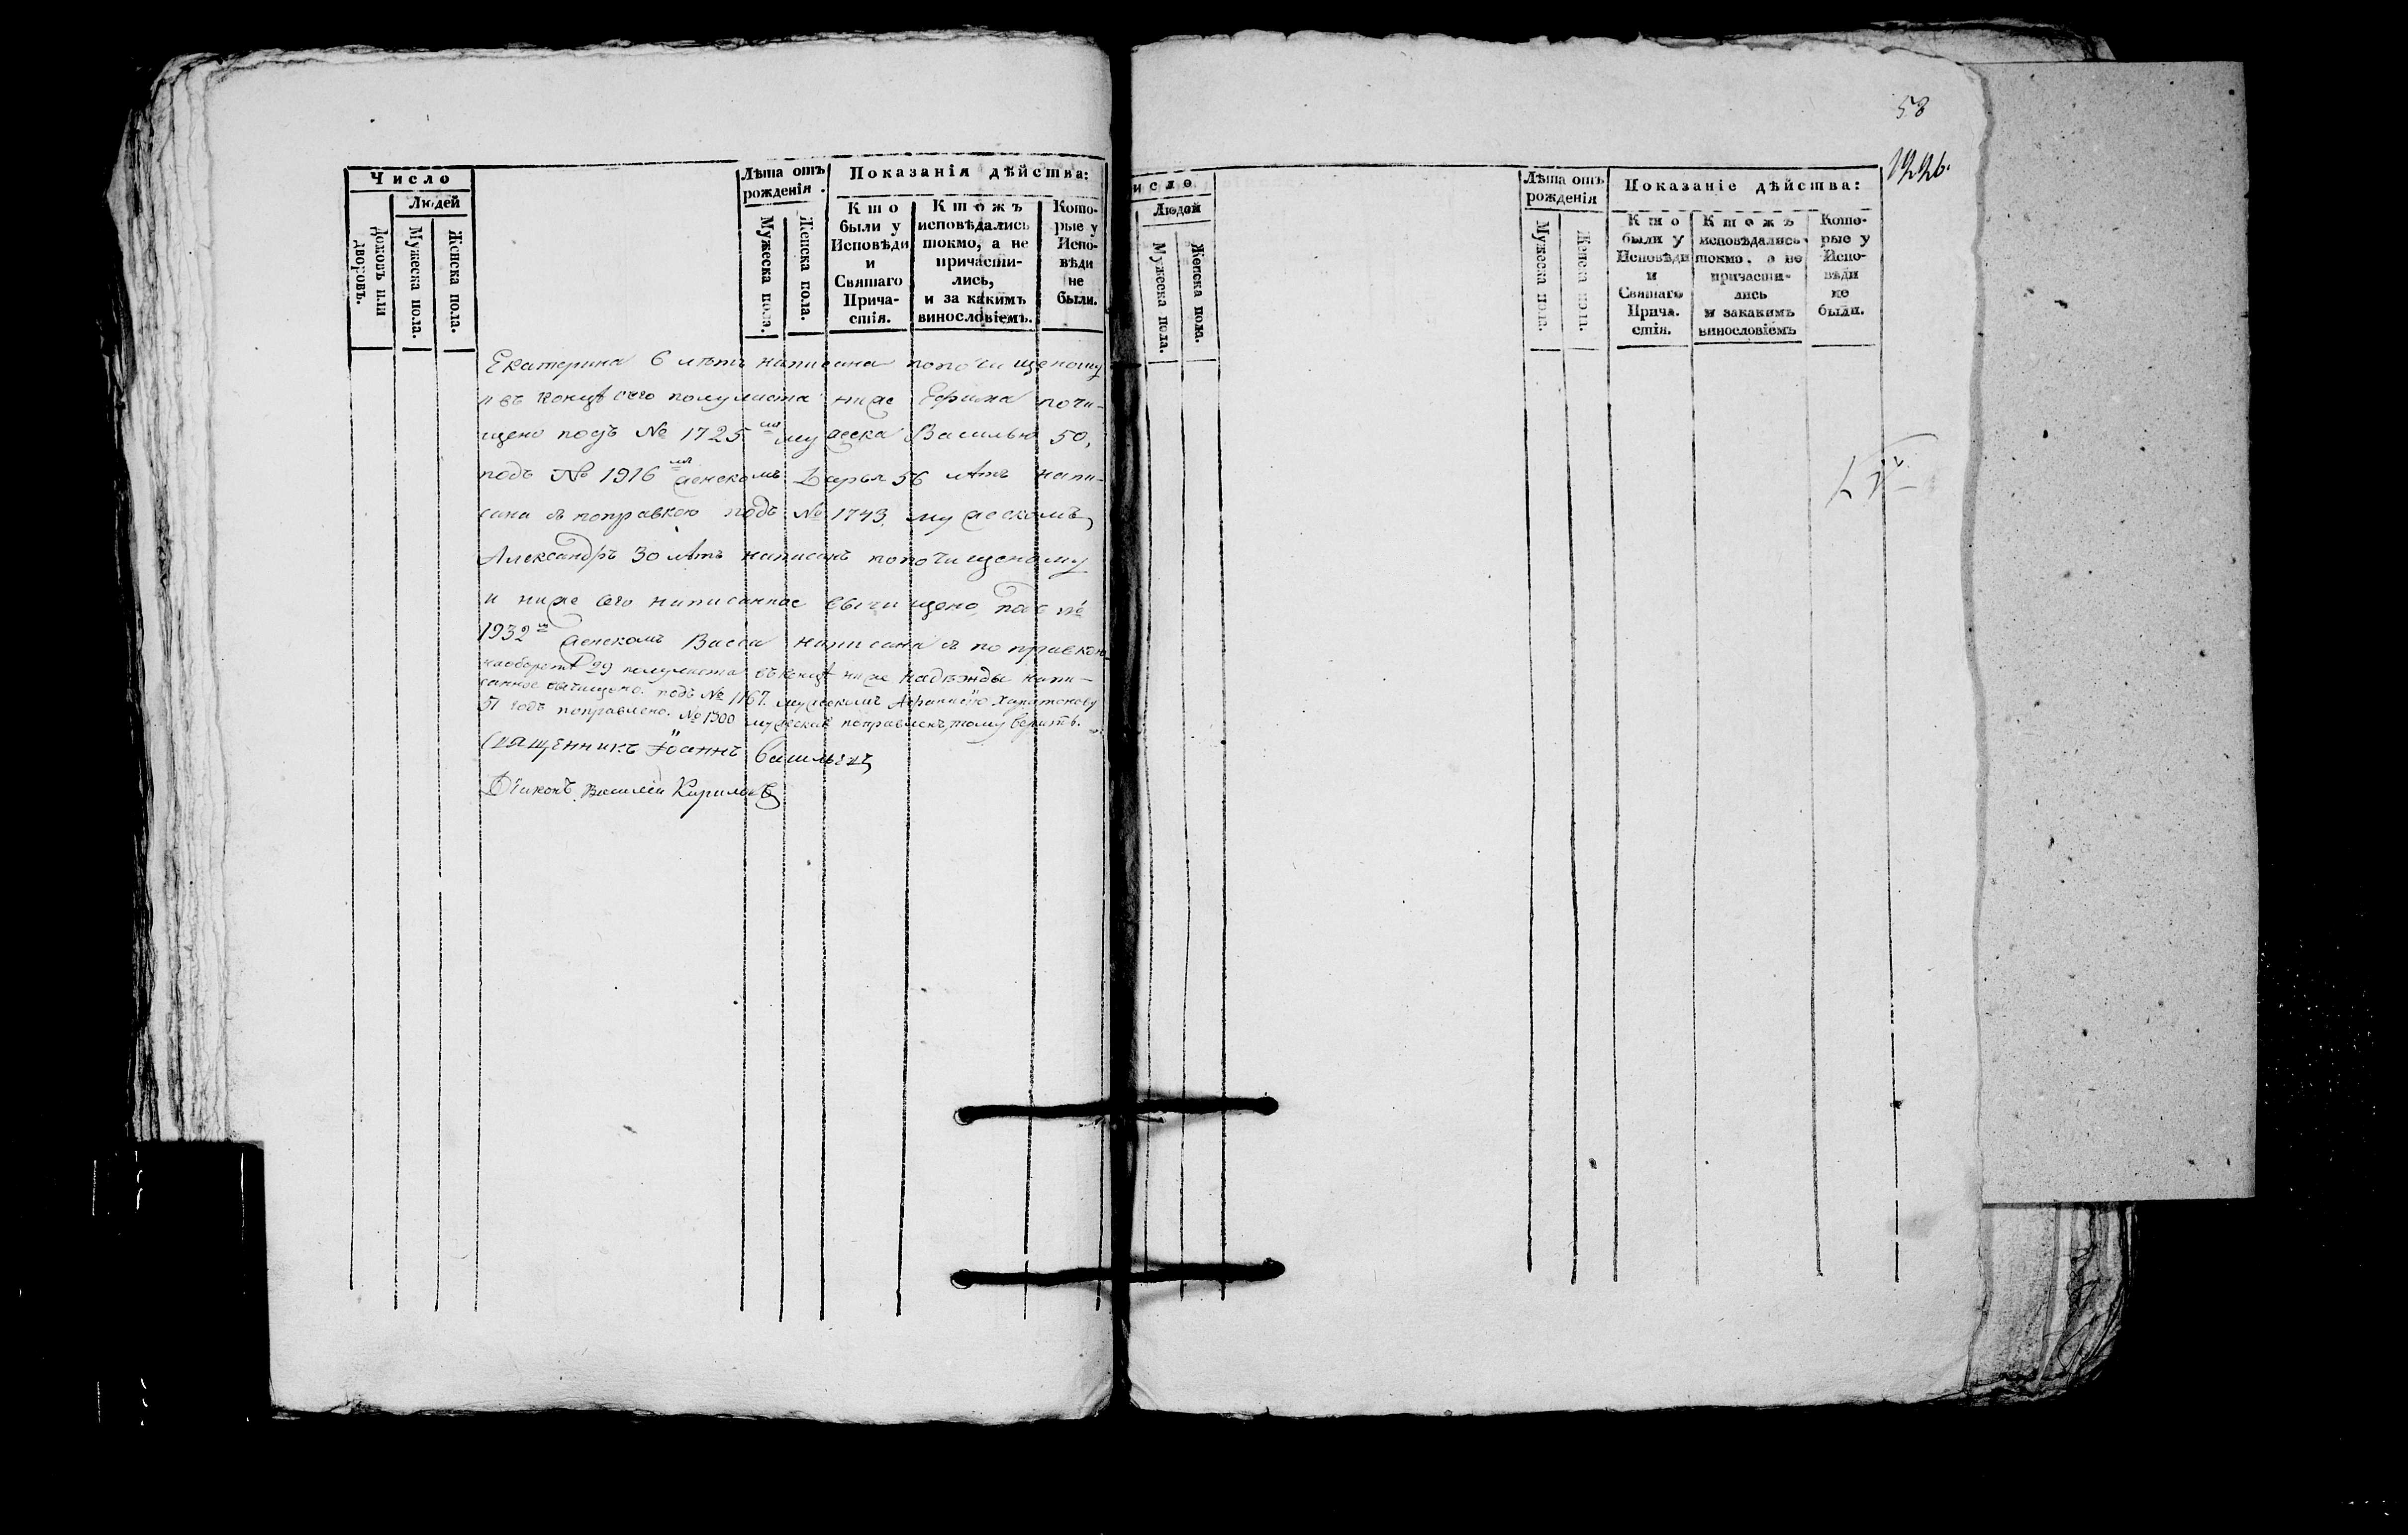 Число
Людей
Домовъ или дворовъ.
Мужеска пола.
Женска пола.
Лѣта отъ рожденія.
Мужеска пола.
Женска пола.
Показанія дѣйства:
Кто
были у
Исповѣди
и
Святаго
Прича-
стія.
Ктожъ
исповѣдались
токмо, а не
причасти-
лись,
и за какимъ
винословіемъ.
Кото-
рые у
Испо-
вѣди
не
были.
Екатерина 6 лѣтъ написана попочищеному
и въ концѣ сего полулиста ниже Ефима почи-
щено подъ № 1725мъ мужеска Василью 50,
подъ № 1916мъ женскомъ Дарья 56 лѣтъ напи-
сана съ поправкою подъ № 1743, мужескомъ
Александръ 30 лѣтъ написанъ попочищеному
и ниже сего написанное вычищено, подъ №
1932мъ женскомъ Васса написана съ поправкою
наоборотѣ 29 полулиста въ концѣ ниже Надежды напи-
санное вычищено. подъ № 1167. мужескомъ Харитонову
51 годъ поправлено. № 1300 мужеский поправленъ, тому верить.
Священникъ Іоаннъ Васильевъ
Діаконъ Василій Кириловъ
58
1226.
исло
Людей
Мужеска пола.
Женска пола.
Лѣта отъ
рожденія
Мужеска пола.
Женска пола.
Показаніе дѣйства:
Кто
были у
Исповѣди
и
Святаго
Прича.
стія.
Ктожъ
исповѣдались
токмо. а не
причасти-
лись
и закакимъ
винословіемъ
Кото-
рые у
Испо-
вѣди
не
были.